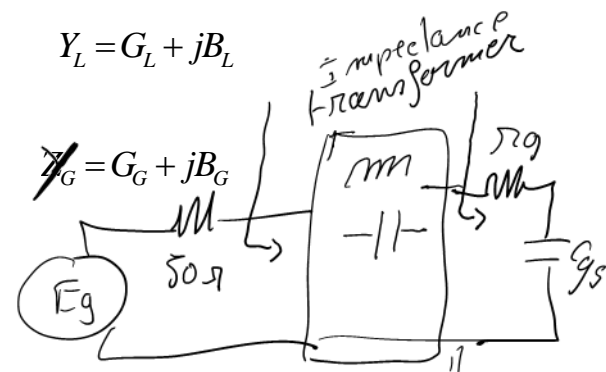 Y_L = G_L + jB_L
Impedance
transformer
Z_G = G_G + jB_G
rg
50Ω
Eg
Cgs